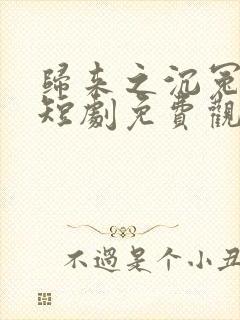 歸来之沉冤
短劇免費觀
不過是个小丑